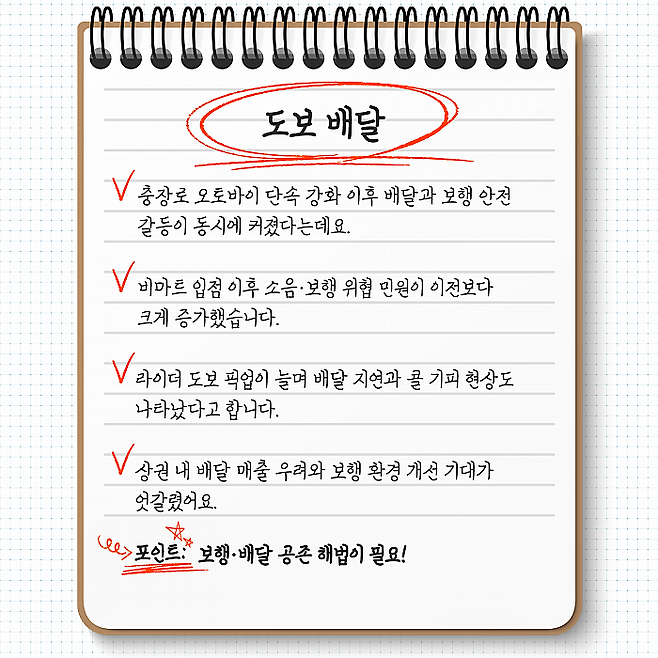 도보 배달
충장로 오토바이 단속 강화 이후 배달과 보행 안전
갈등이 동시에 커졌다는데요.
비마트 입점 이후 소음·보행 위협 민원이 이전보다
크게 증가했습니다.
라이더 도보 픽업이 늘며 배달 지연과 콜 기피 현상도
나타났다고 합니다.
상권 내 배달 매출 우려와 보행 환경 개선 기대가
엇갈렸어요.
포인트: 보행·배달 공존 해법이 필요!